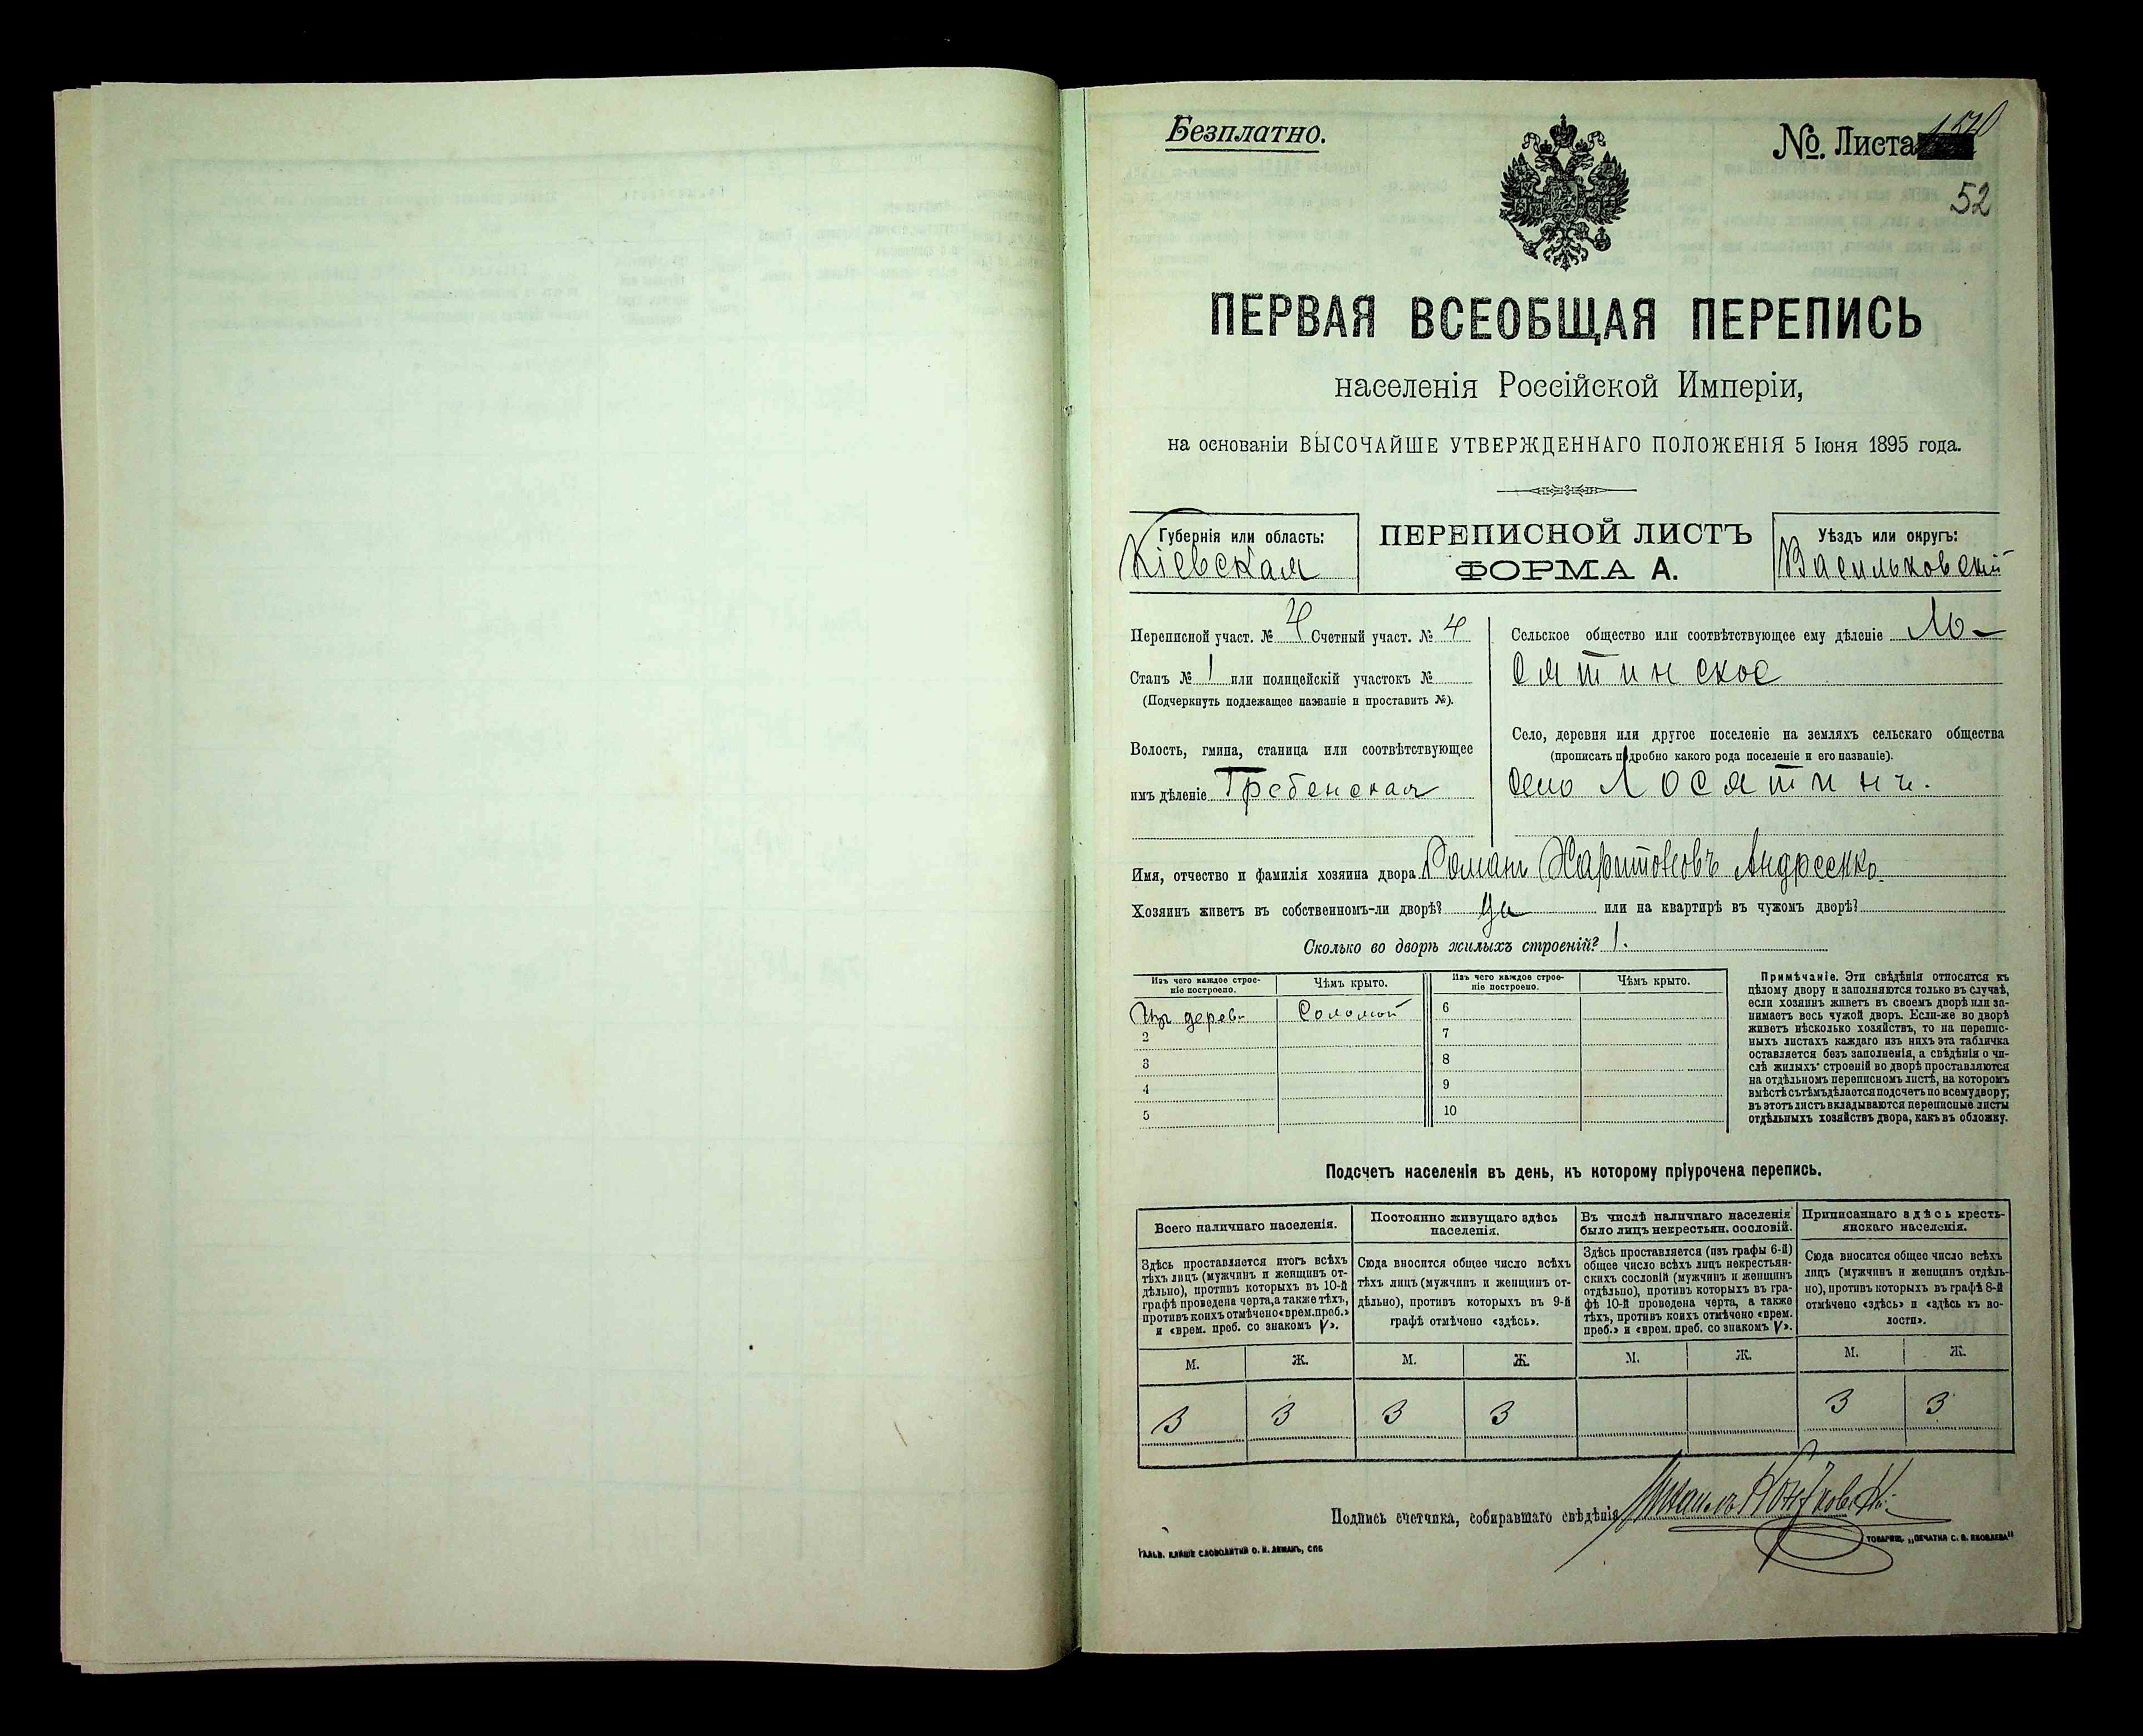 Безплатно.
№. Листа
52
ПЕРВАЯ ВСЕОБЩАЯ ПЕРЕПИСЬ
населенія Россійской Имперіи,
на основаніи ВЫСОЧАЙШЕ УТВЕРЖДЕННАГО ПОЛОЖЕНІЯ 5 Іюня 1895 года.
Губернія или область:
Кіевская
ПЕРЕПИСНОЙ ЛИСТЪ
ФОРМА А.
Уѣздъ или округъ:
Васильковскій
Переписной участ. № 4 Счетный участ. № 4
Станъ № 1 или полицейскій участокъ №
(Подчеркнуть подлежащее названіе и проставить №).
Волость, гмина, станица или соотвѣтствующее
имъ дѣленіе Гребенская
Сельское общество или соотвѣтствующее ему дѣленіе Ло-
сятинское
Село, деревня или другое поселеніе на земляхъ сельскаго общества
(прописать подробно какого рода поселеніе и его названіе).
село Лосятинъ.
Имя, отчество и фамилія хозяина двора Романъ Харитоновъ Андреенко.
Хозяинъ живетъ въ собственномъ-ли дворѣ? да или на квартирѣ въ чужомъ дворѣ?
Сколько во дворѣ жилыхъ строеній? 1.
Изъ чего каждое строе-
ніе построено.
Чѣмъ крыто.
Изъ чего каждое строе-
ніе построено.
Чѣмъ крыто.
Изъ дерев. Соломой 6
2 7
3 8
4 9
5 10
Примѣчаніе. Эти свѣдѣнія относятся къ
цѣлому двору и заполняются только въ случаѣ,
если хозяинъ живетъ въ своемъ дворѣ или за-
нимаетъ весь чужой дворъ. Если-же во дворѣ
живетъ нѣсколько хозяйствъ, то на перепис-
ныхъ листахъ каждаго изъ нихъ эта табличка
оставляется безъ заполненія, а свѣдѣнія о чи-
слѣ жилыхъ строеній во дворѣ проставляются
на отдѣльномъ переписномъ листѣ, на которомъ
вмѣстѣ съ тѣмъ дѣлается подсчетъ по всему двору;
въ этотъ листъ вкладываются переписные листы
отдѣльныхъ хозяйствъ двора, какъ въ обложку.
Подсчетъ населенія въ день, къ которому пріурочена перепись.
Всего наличнаго населенія.
Здѣсь проставляется итогъ всѣхъ
тѣхъ лицъ (мужчинъ и женщинъ от-
дѣльно), противъ которыхъ въ 10-й
графѣ проведена черта, а также тѣхъ,
противъ коихъ отмѣчено «врем. преб.»
и «врем. преб. со знакомъ V».
Постоянно живущаго здѣсь
населенія.
Сюда вносится общее число всѣхъ
тѣхъ лицъ (мужчинъ и женщинъ от-
дѣльно), противъ которыхъ въ 9-й
графѣ отмѣчено «здѣсь».
Въ числѣ наличнаго населенія
было лицъ некрестьян. сословій.
Здѣсь проставляется (изъ графы 6-й)
общее число всѣхъ лицъ некрестьян-
скихъ сословій (мужчинъ и женщинъ
отдѣльно), противъ которыхъ въ гра-
фѣ 10-й проведена черта, а также
тѣхъ, противъ коихъ отмѣчено «врем.
преб.» и «врем. преб. со знакомъ V».
Приписаннаго здѣсь кресть-
янскаго населенія.
Сюда вносится общее число всѣхъ
лицъ (мужчинъ и женщинъ отдѣль-
но), противъ которыхъ въ графѣ 8-й
отмѣчено «здѣсь» и «здѣсь къ во-
лости».
М. Ж. М. Ж. М. Ж. М. Ж.
3 3 3 3 3 3
Подпись счетчика, собиравшаго свѣдѣнія Михаилъ
ГАЛЬВ. КЛИШЕ СЛОВОЛИТНИ О. И. ЛЕМАНЪ, СПБ
ТОВАРИЩ. „ПЕЧАТНЯ С. П. ЯКОВЛЕВА"